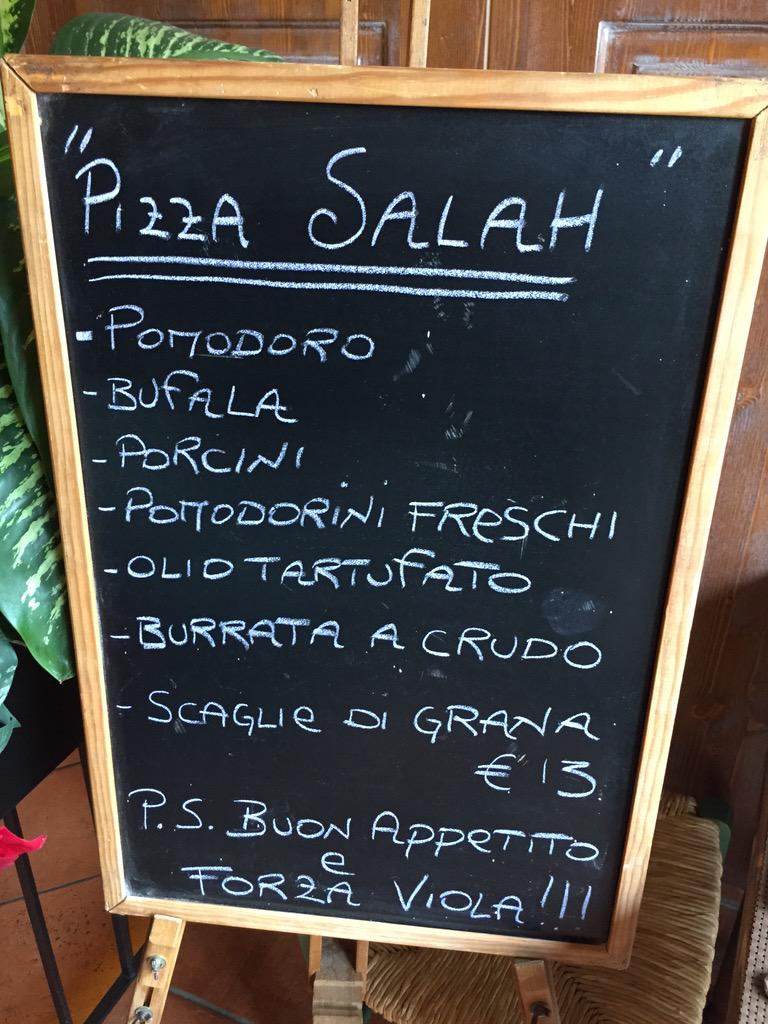 "PIZZA SALAH"
- POMODORO
- BUFALA
- PORCINI
- POMODORINI FRESCHI
- OLIO TARTUFATO
- BURRATA A CRUDO
- SCAGLIE DI GRANA
€ 13
P.S. BUON APPETITO
e
FORZA VIOLA!!!